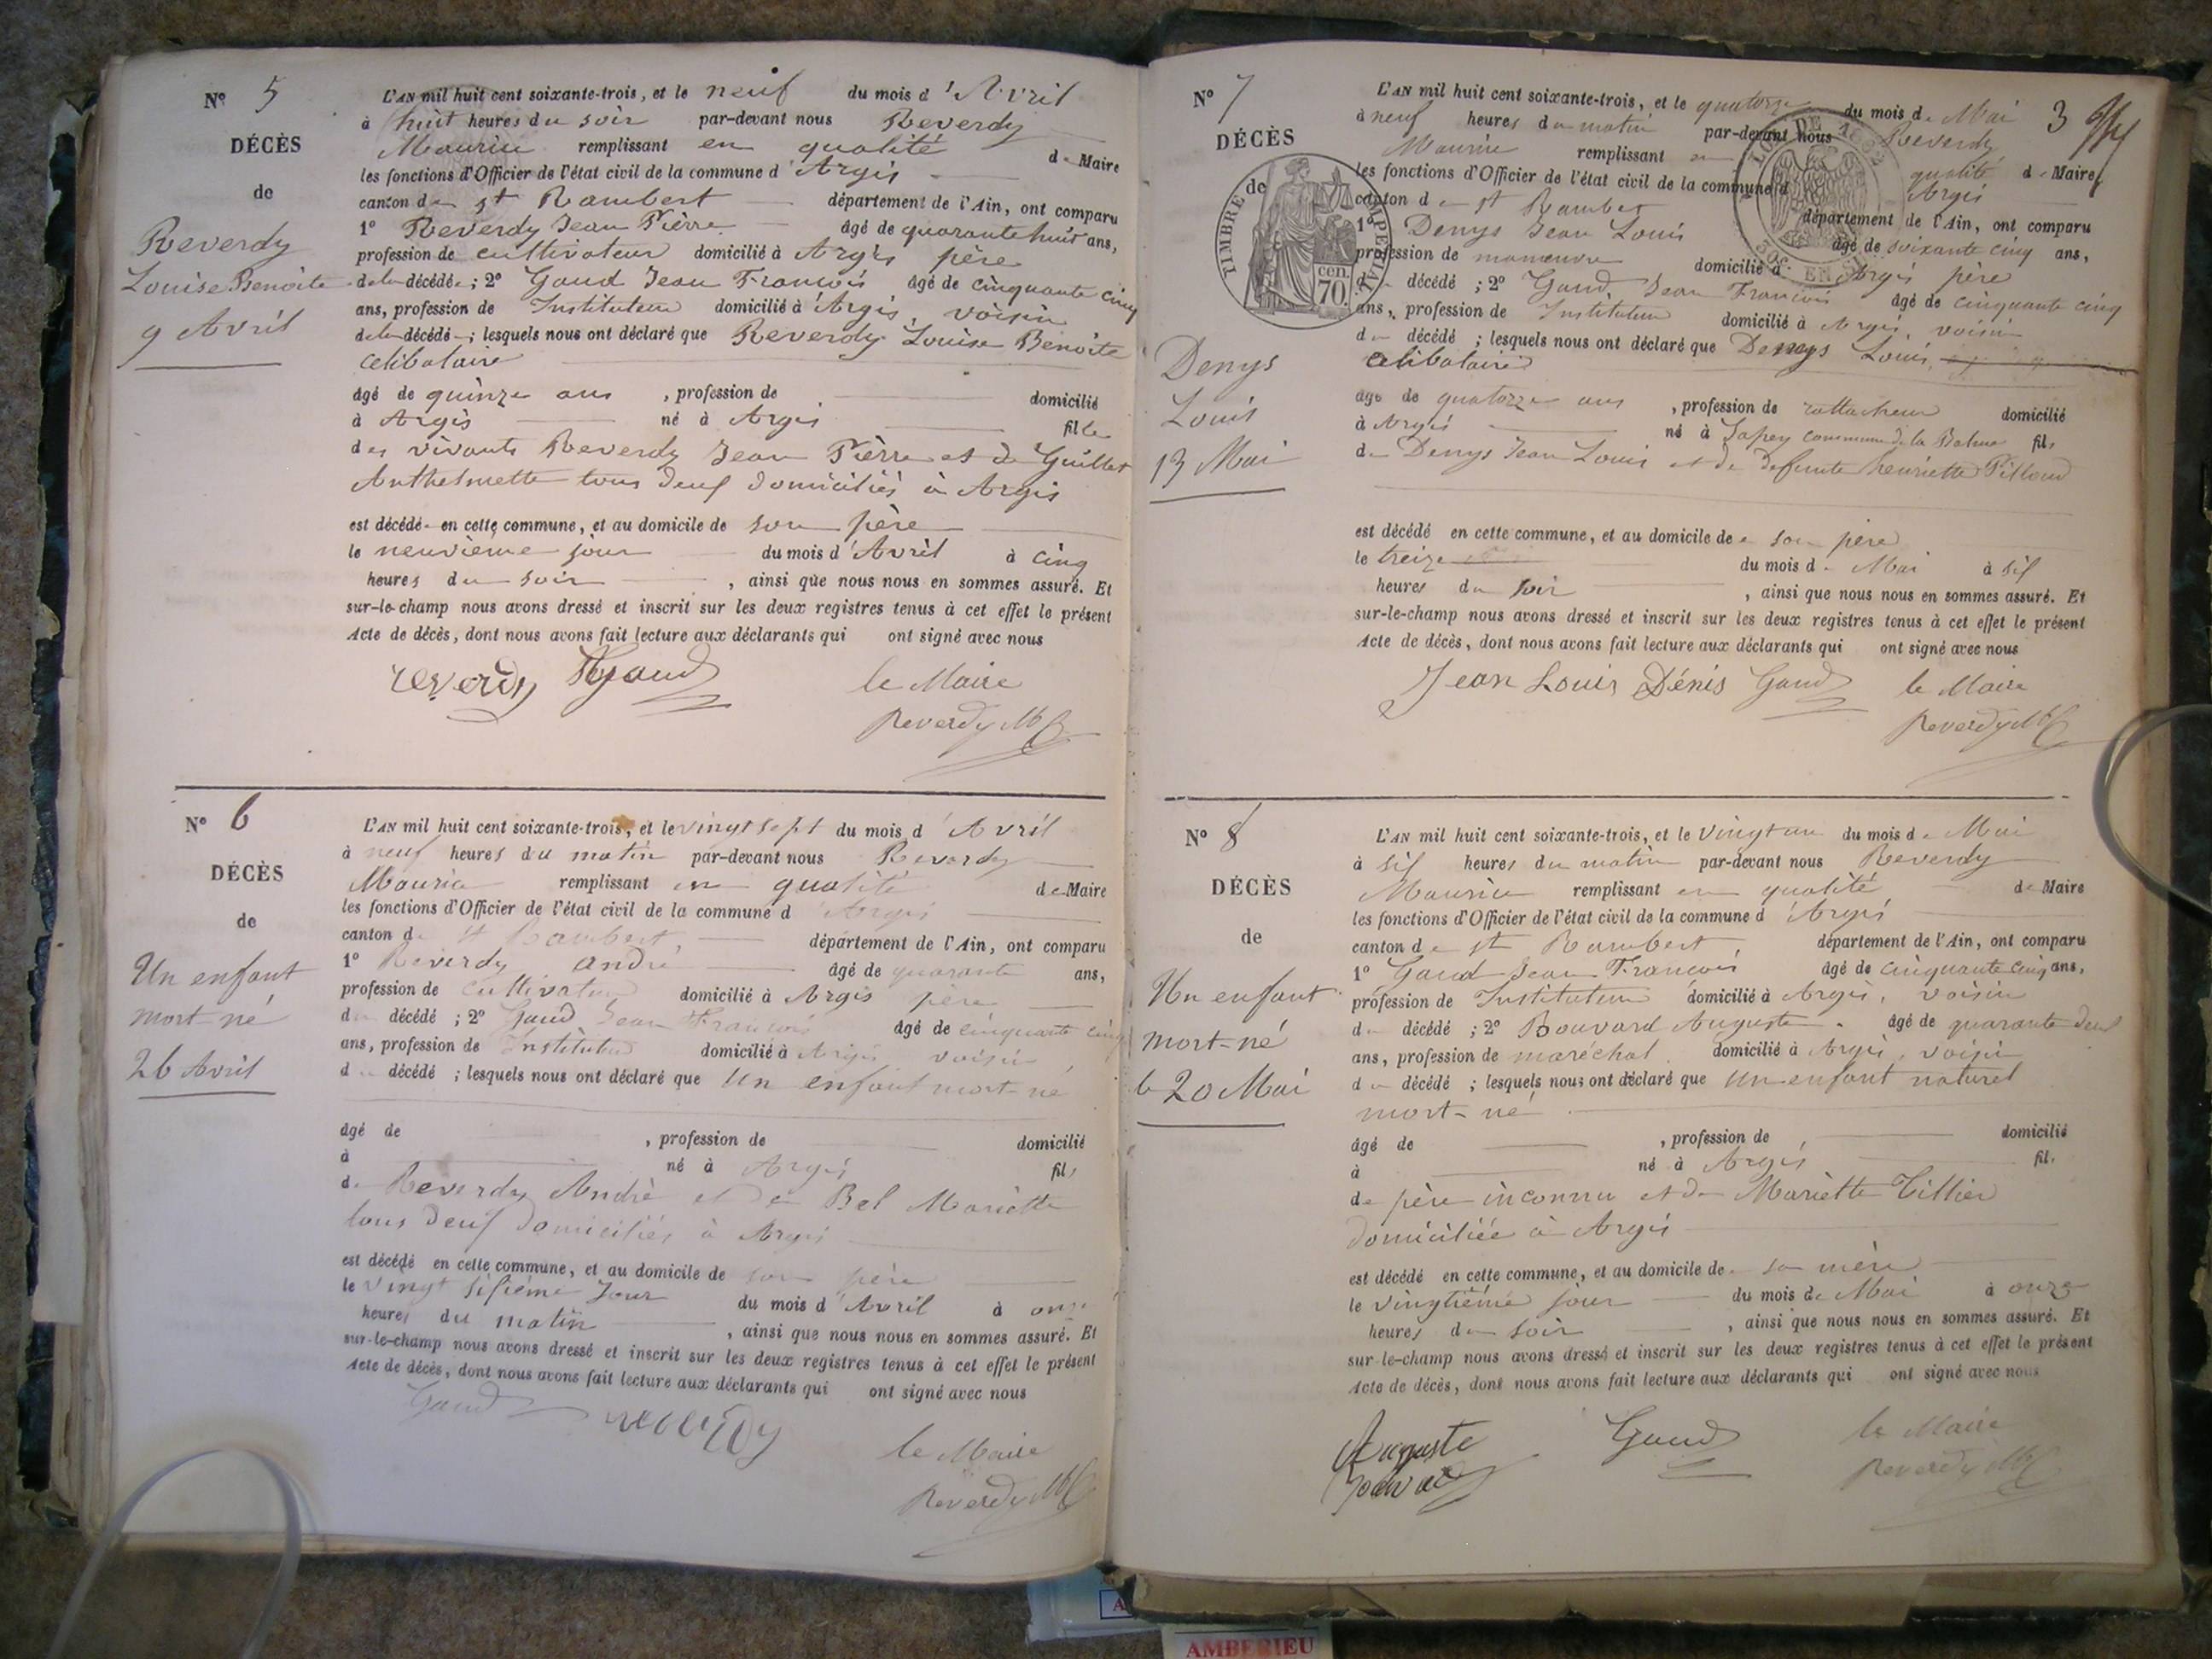 N° 5
DÉCÈS
de
Reverdy
Louise Benoite
9 Avril
L'AN mil huit cent soixante-trois, et le neuf du mois d'Avril
à huit heures du soir par-devant nous Reverdy
Maurice remplissant en qualité de Maire
les fonctions d'Officier de l'état civil de la commune d'Argis
canton de st Rambert département de l'Ain, ont comparu
1° Reverdy Jean Pierre âgé de quarante huit ans,
profession de cultivateur domicilié à Argis père
de la décédée; 2° Gaud Jean François âgé de cinquante cinq
ans, profession de Instituteur domicilié à Argis, voisin
de la décédé; lesquels nous ont déclaré que Reverdy Louise Benoite
celibataire
âgé de quinze ans, profession de domicilié
à Argis né à Argis fille
des vivants Reverdy Jean Pierre et de Guillet
Anthelmette tous deux domiciliés à Argis
est décédé en cette commune, et au domicile de son père
le neuvième jour du mois d'Avril à cinq
heures du soir, ainsi que nous nous en sommes assuré. Et
sur-le-champ nous avons dressé et inscrit sur les deux registres tenus à cet effet le présent
Acte de décès, dont nous avons fait lecture aux déclarants qui ont signé avec nous
reverdy Gaud le Maire
Reverdy
N° 6
DÉCÈS
de
Un enfant
mort-né
26 Avril
L'AN mil huit cent soixante-trois, et le vingt sept du mois d'Avril
à neuf heures du matin par-devant nous Reverdy
Maurice remplissant en qualité de Maire
les fonctions d'Officier de l'état civil de la commune d'Argis
canton de st Rambert, département de l'Ain, ont comparu
1° Reverdy André âgé de quarante ans,
profession de cultivateur domicilié à Argis père
du décédé; 2° Gaud Jean François âgé de cinquante cinq
ans, profession de Instituteur domicilié à Argis voisin
du décédé; lesquels nous ont déclaré que Un enfant mort-né
âgé de , profession de domicilié
à né à Argis fils
de Reverdy André et de Bel Mariette
tous deux domiciliés à Argis
est décédé en cette commune, et au domicile de son père
le vingt sixième Jour du mois d'Avril à onze
heures du matin, ainsi que nous nous en sommes assuré. Et
sur-le-champ nous avons dressé et inscrit sur les deux registres tenus à cet effet le présent
Acte de décès, dont nous avons fait lecture aux déclarants qui ont signé avec nous
Gaud reverdy
le Maire
Reverdy
N° 7
DÉCÈS
de
TIMBRE IMPERIAL
70 cen.
Denys
Louis
13 Mai
3
LOI DE 1862
EN SUS
L'AN mil huit cent soixante-trois, et le quatorze du mois de Mai
à neuf heures du matin par-devant nous Reverdy
Maurice remplissant en qualité de Maire
les fonctions d'Officier de l'état civil de la commune d'Argis
canton de st Rambert département de l'Ain, ont comparu
1° Denys Jean Louis âgé de soixante cinq ans,
profession de manœuvre domicilié à Argis père
du décédé; 2° Gaud Jean François âgé de cinquante cinq
ans, profession de Instituteur domicilié à Argis, voisin
du décédé; lesquels nous ont déclaré que Denys Louis
celibataire
âgé de quatorze ans, profession de rattacheur domicilié
à Argis né à commune de la Balme fils
de Denys Jean Louis et de defunte henriette Pilloud
est décédé en cette commune, et au domicile de son père
le treize du mois de Mai à six
heures du soir, ainsi que nous nous en sommes assuré. Et
sur-le-champ nous avons dressé et inscrit sur les deux registres tenus à cet effet le présent
Acte de décès, dont nous avons fait lecture aux déclarants qui ont signé avec nous
Jean Louis Dénis Gaud le Maire
Reverdy
N° 8
DÉCÈS
de
Un enfant
mort-né
le 20 Mai
L'AN mil huit cent soixante-trois, et le vingt un du mois de Mai
à six heures du matin par-devant nous Reverdy
Maurice remplissant en qualité de Maire
les fonctions d'Officier de l'état civil de la commune d'Argis
canton de st Rambert, département de l'Ain, ont comparu
1° Gaud Jean François âgé de cinquante cinq ans,
profession de Instituteur domicilié à Argis, voisin
du décédé; 2° Bouvard Auguste âgé de quarante deux
ans, profession de maréchal domicilié à Argis, voisin
du décédé; lesquels nous ont déclaré que Un enfant naturel
mort-né
âgé de , profession de domicilié
à né à Argis, fils
de père inconnu et de Mariette Tillier
domiciliée à Argis
est décédé en cette commune, et au domicile de sa mère
le vingtième jour du mois de Mai à onze
heures du soir, ainsi que nous nous en sommes assuré. Et
sur-le-champ nous avons dressé et inscrit sur les deux registres tenus à cet effet le présent
Acte de décès, dont nous avons fait lecture aux déclarants qui ont signé avec nous
Auguste Gaud le Maire
Bouvard Reverdy
AMBERIEU